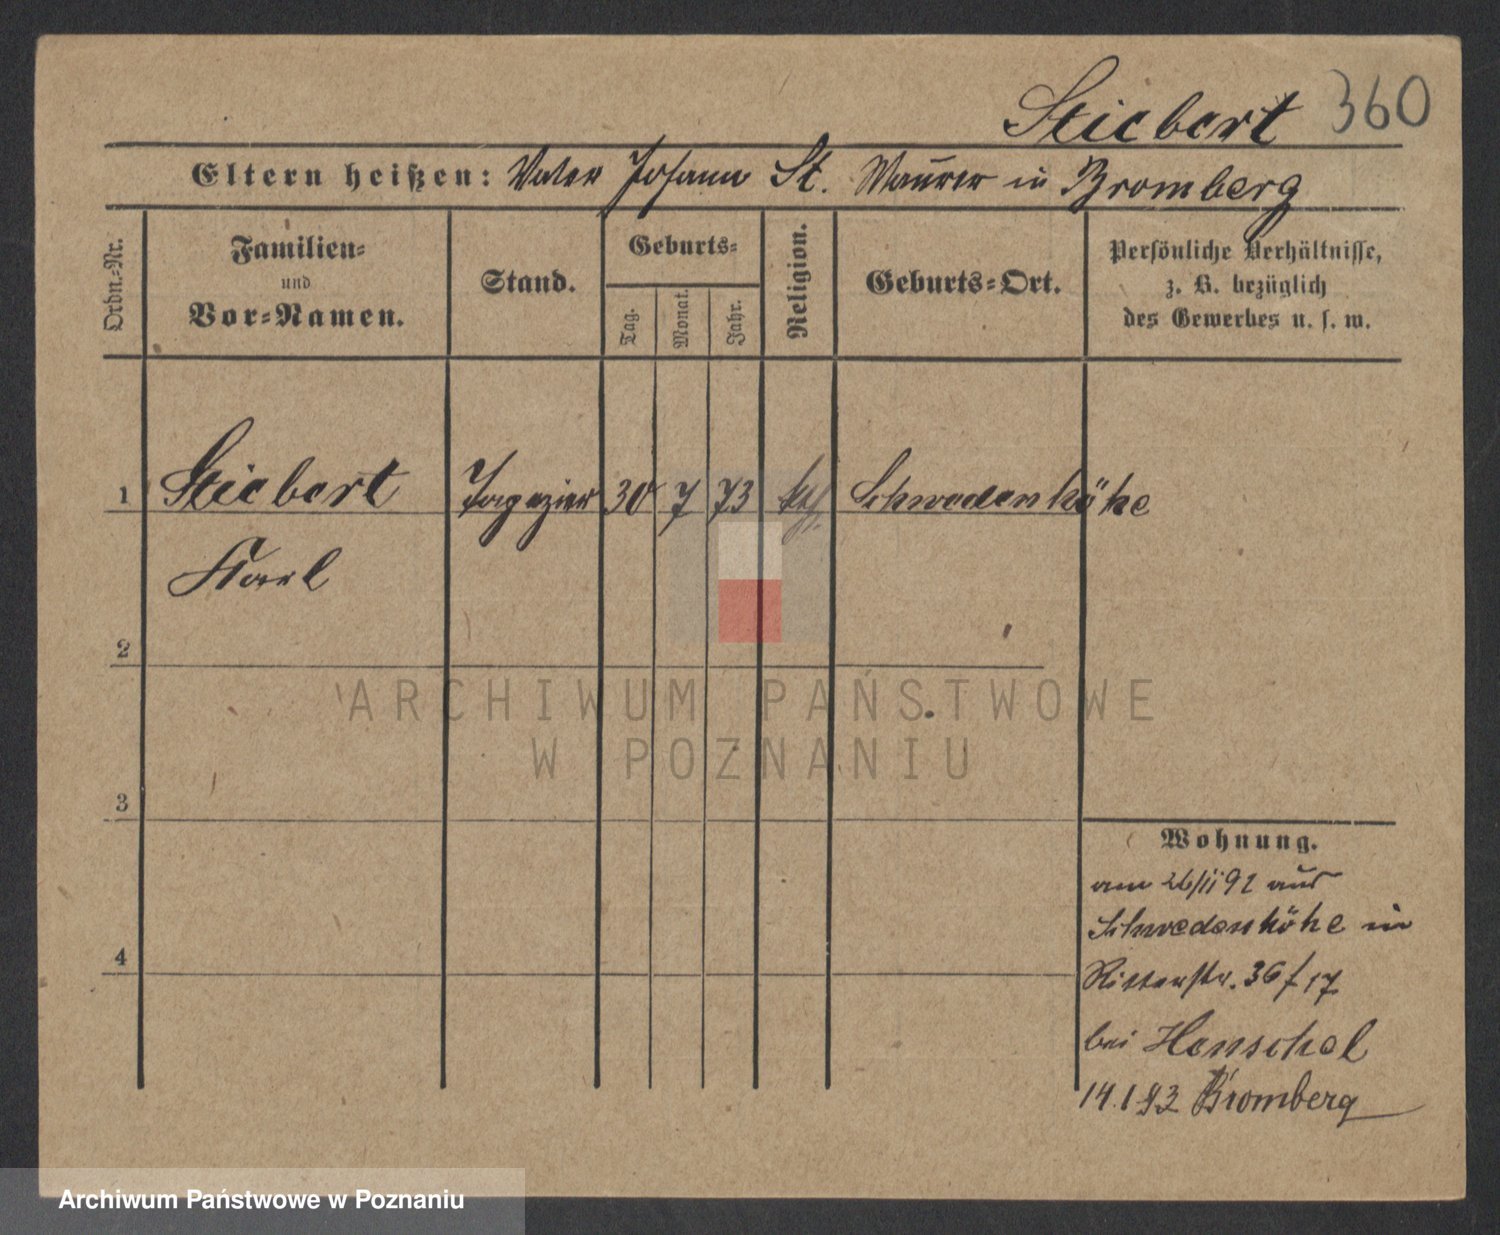 Stiebert 360
Eltern heißen: Vater Johann St. Maurer in Bromberg
Ordn.-Nr.
Familien-
und
Vor-Namen.
Stand.
Geburts-
Tag.
Monat.
Jahr.
Religion.
Geburts-Ort.
Persönliche Verhältnisse,
z. B. bezüglich
des Gewerbes u. s. w.
1 Stiebert Tapezier 30 7 73 kth. Schwedenhöhe
Karl
2
ARCHIWUM PAŃSTWOWE
W POZNANIU
3
Wohnung.
am 26/11 92 aus
Schwedenhöhe in
4
Ritterstr. 36/17
bei Henschel
14.1.93 Bromberg
Archiwum Państwowe w Poznaniu